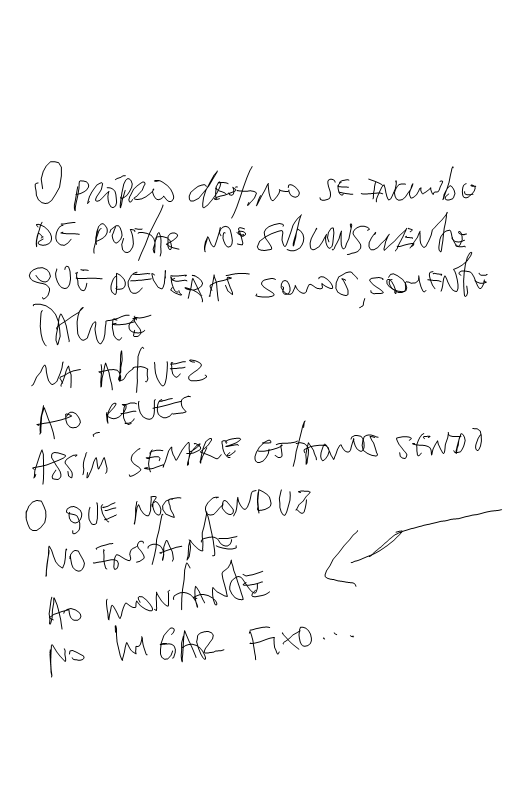 O PRÓPRIO destino SE INCUMBO
DE POSTAR NOS SUBCONSCIENTE
QUE DEVERAS SOMOS, SOMENTE
TALVES
NA ALTIVEZ
AO REVES
ASSIM SEMPRE ESTAMOS SENDO
O QUE NOS CONDUZ
NO INSTANTE
AO MONTANTE
NO LUGAR FIXO...